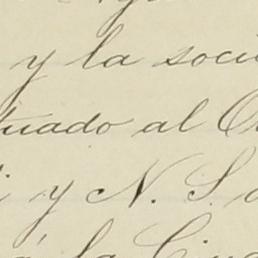 y la soci
tuado al O
i y N. S. d
á la Ciu